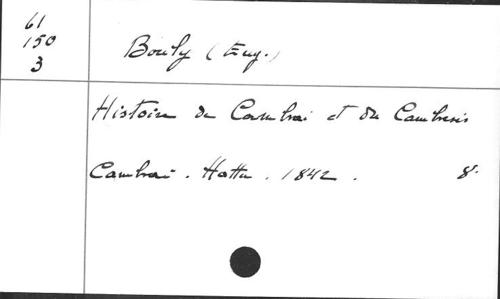 61
150
3
Bouly (Eug.)
Histoire de Cambrai et du Cambresis
Cambrai. Hattu. 1842. 8°